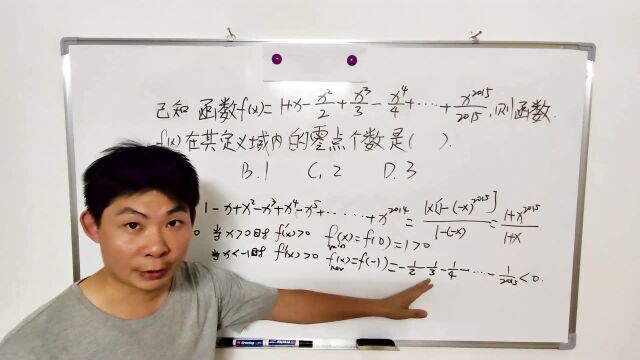 已知函数f(x)=1+x-x²/2+x³/3-x⁴/4+⋯⋯+x²⁰¹⁵/2015,则函数
f(x)在其定义域内的零点个数是( ).
B.1 C,2 D.3
1-x+x²-x³+x⁴-x⁵+⋯⋯+x²⁰¹⁴=1×[1-(-x)²⁰¹⁵]/1-(-x)=1+x²⁰¹⁵/1+x
0 当x>0时 f'(x)>0 f(x)min=f(0)=1>0
当x<-1时 f'(x)>0 f(x)max=f(-1)=-1/2-1/3-1/4-⋯-1/2015<0.